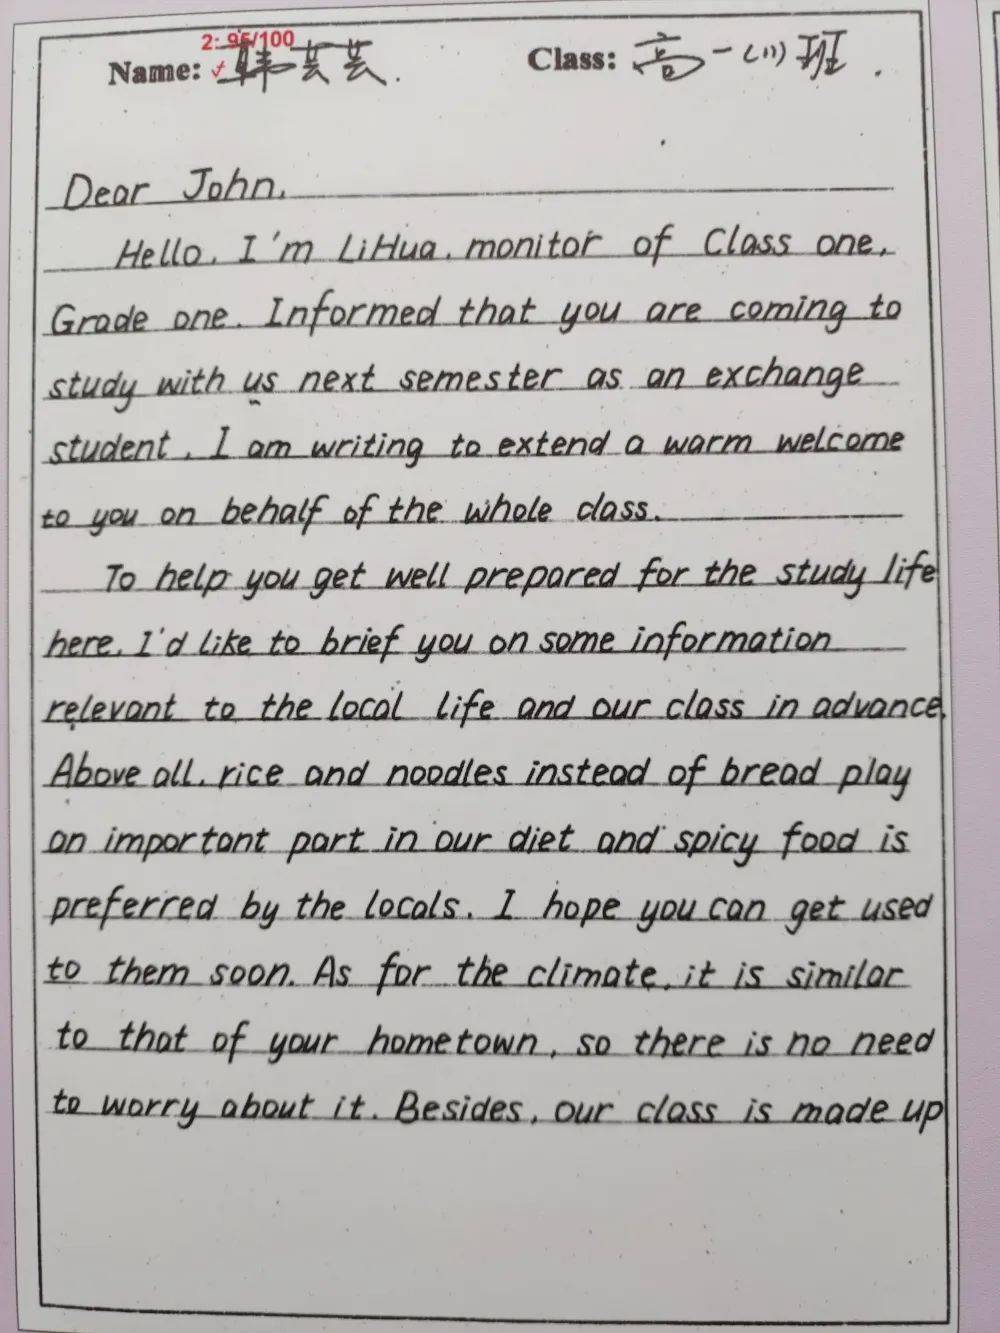 2: 95/100
Name: 韩芸芸.
Class: 高一(1)班.
Dear John,
Hello, I'm LiHua, monitor of Class one,
Grade one. Informed that you are coming to
study with us next semester as an exchange
student, I am writing to extend a warm welcome
to you on behalf of the whole class.
To help you get well prepared for the study life
here, I'd like to brief you on some information
relevant to the local life and our class in advance.
Above all, rice and noodles instead of bread play
an important part in our diet and spicy food is
preferred by the locals. I hope you can get used
to them soon. As for the climate, it is similar
to that of your hometown, so there is no need
to worry about it. Besides, our class is made up